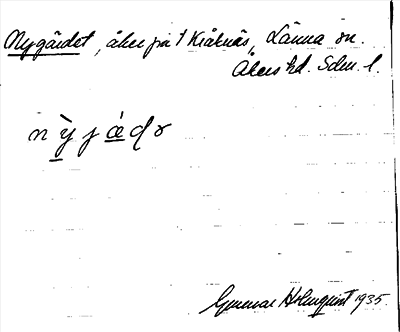 Nygärdet, åker på 1 Kråknäs, Länna sn.
Åkers hd. Sdm. l.
nỳjǽdr
Gunnar Holmquist 1935.